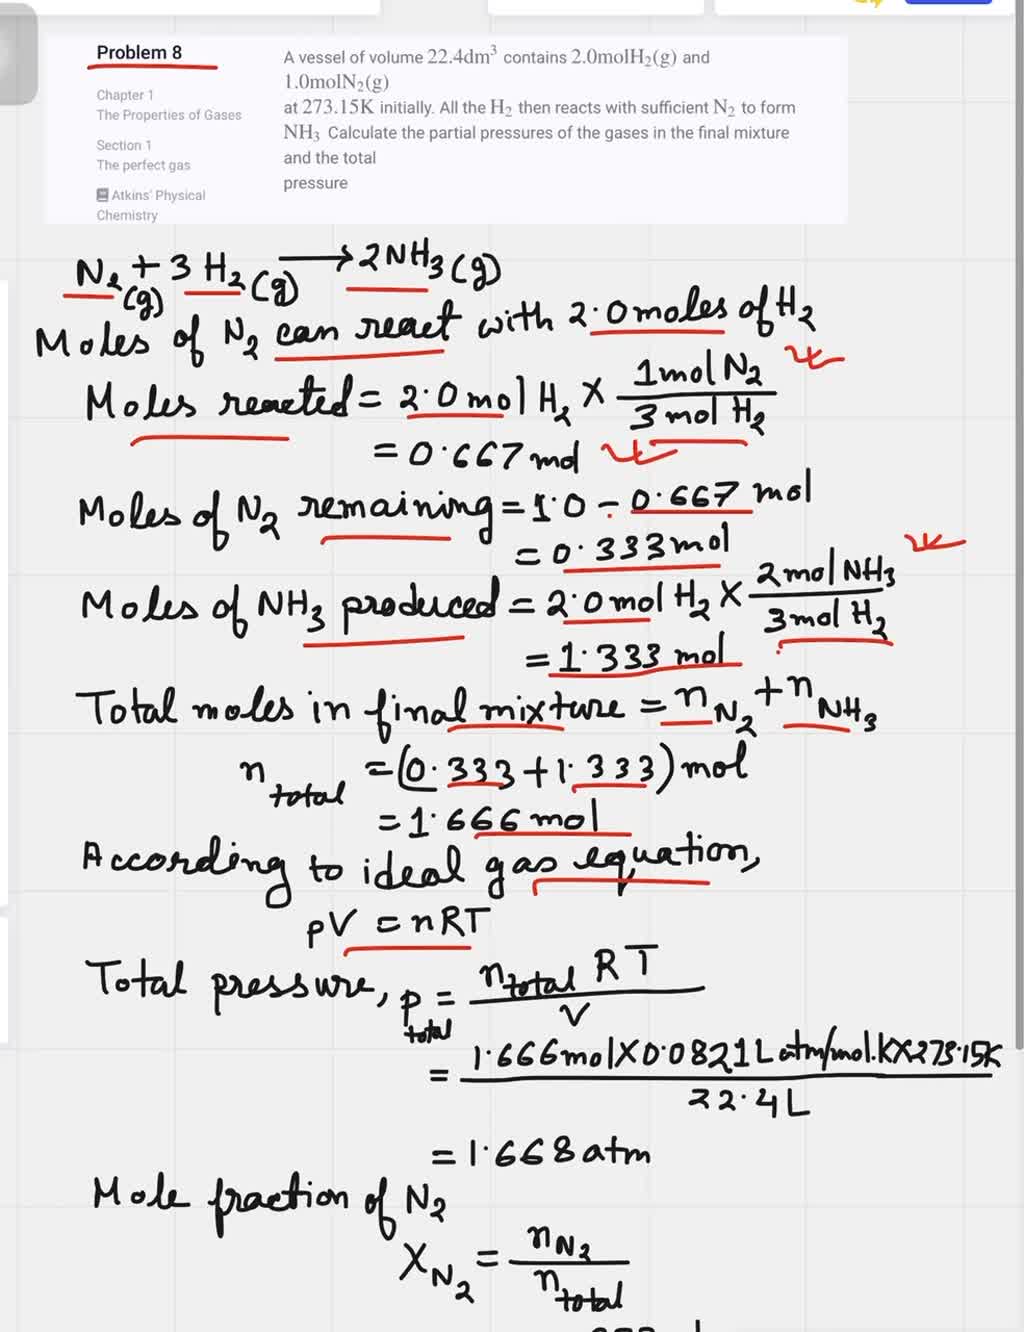 Problem 8
Chapter 1
The Properties of Gases
Section 1
The perfect gas
Atkins' Physical
Chemistry
A vessel of volume 22.4dm³ contains 2.0molH₂(g) and
1.0molN₂(g)
at 273.15K initially. All the H₂ then reacts with sufficient N₂ to form
NH₃ Calculate the partial pressures of the gases in the final mixture
and the total
pressure
N₂(g) + 3H₂(g) → 2NH₃(g)
Moles of N₂ can react with 2.0moles of H₂
Moles reacted = 2.0mol H₂ × 1mol N₂ / 3mol H₂
= 0.667 mol
Moles of N₂ remaining = 1.0 - 0.667 mol
= 0.333 mol
Moles of NH₃ produced = 2.0mol H₂ × 2mol NH₃ / 3mol H₂
= 1.333 mol
Total moles in final mixture = n N₂ + n NH₃
n total = (0.333 + 1.333) mol
= 1.666 mol
According to ideal gas equation,
pV = nRT
Total pressure, p total = n total RT / V
= 1.666mol × 0.0821 L atm/mol.K × 273.15K / 22.4L
= 1.668 atm
Mole fraction of N₂
X N₂ = n N₂ / n total